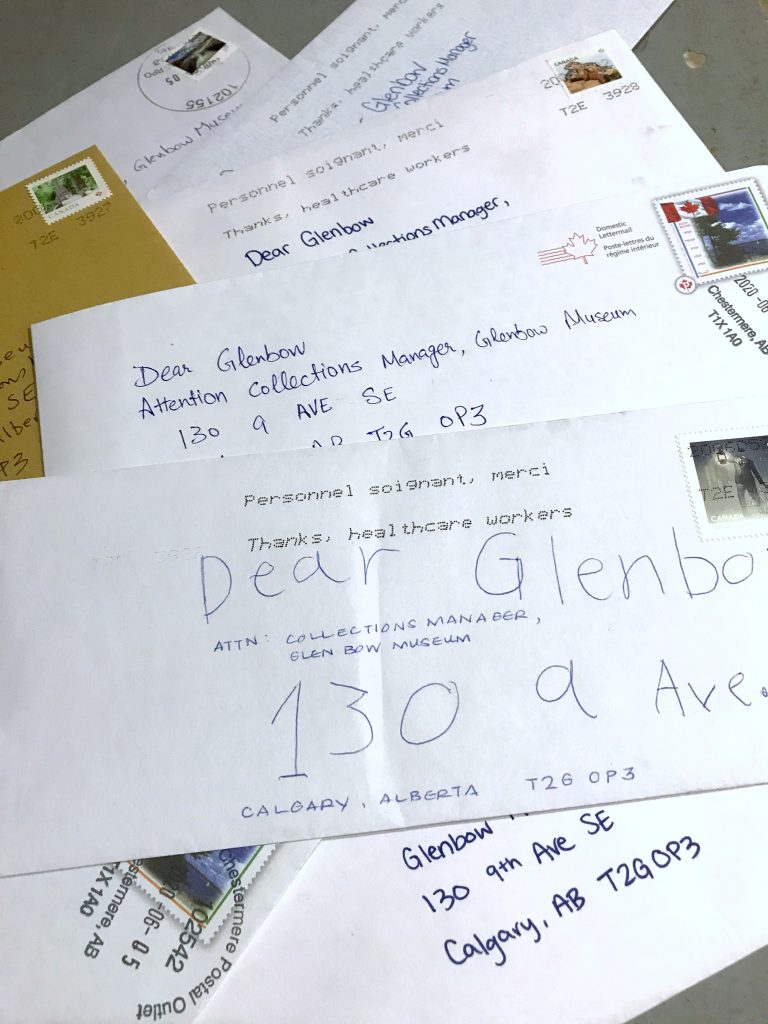 102155
05
Glenbow Museum
Personnel soignant, Merci
Thanks, healthcare workers
Glenbow
Collections Manager
CANADA
T2E 3928
CANADA
T2E 3927
Personnel soignant, merci
Thanks, healthcare workers
Dear Glenbow
Collections Manager,
Domestic
Lettermail
Poste-lettres du
régime intérieur
2020-06
Chestermere, AB
T1X 1A0
Dear Glenbow
Attention Collections Manager, Glenbow Museum
130 9 AVE SE
T2G 0P3
SE
P3
Personnel soignant, merci
Thanks, healthcare workers
T2E
CANADA
Dear Glenbo
ATTN: COLLECTIONS MANAGER,
GLEN BOW MUSEUM
130 9 Ave.
CALGARY, ALBERTA T2G 0P3
Glenbow
130 9th Ave SE
Calgary, AB T2G0P3
Chestermere, AB
T1X 1A0
2020-06-05
102542
Chestermere Postal Outlet